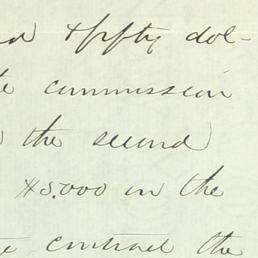 & fifty dol-
commission
the second
$5.000 in the
contract the